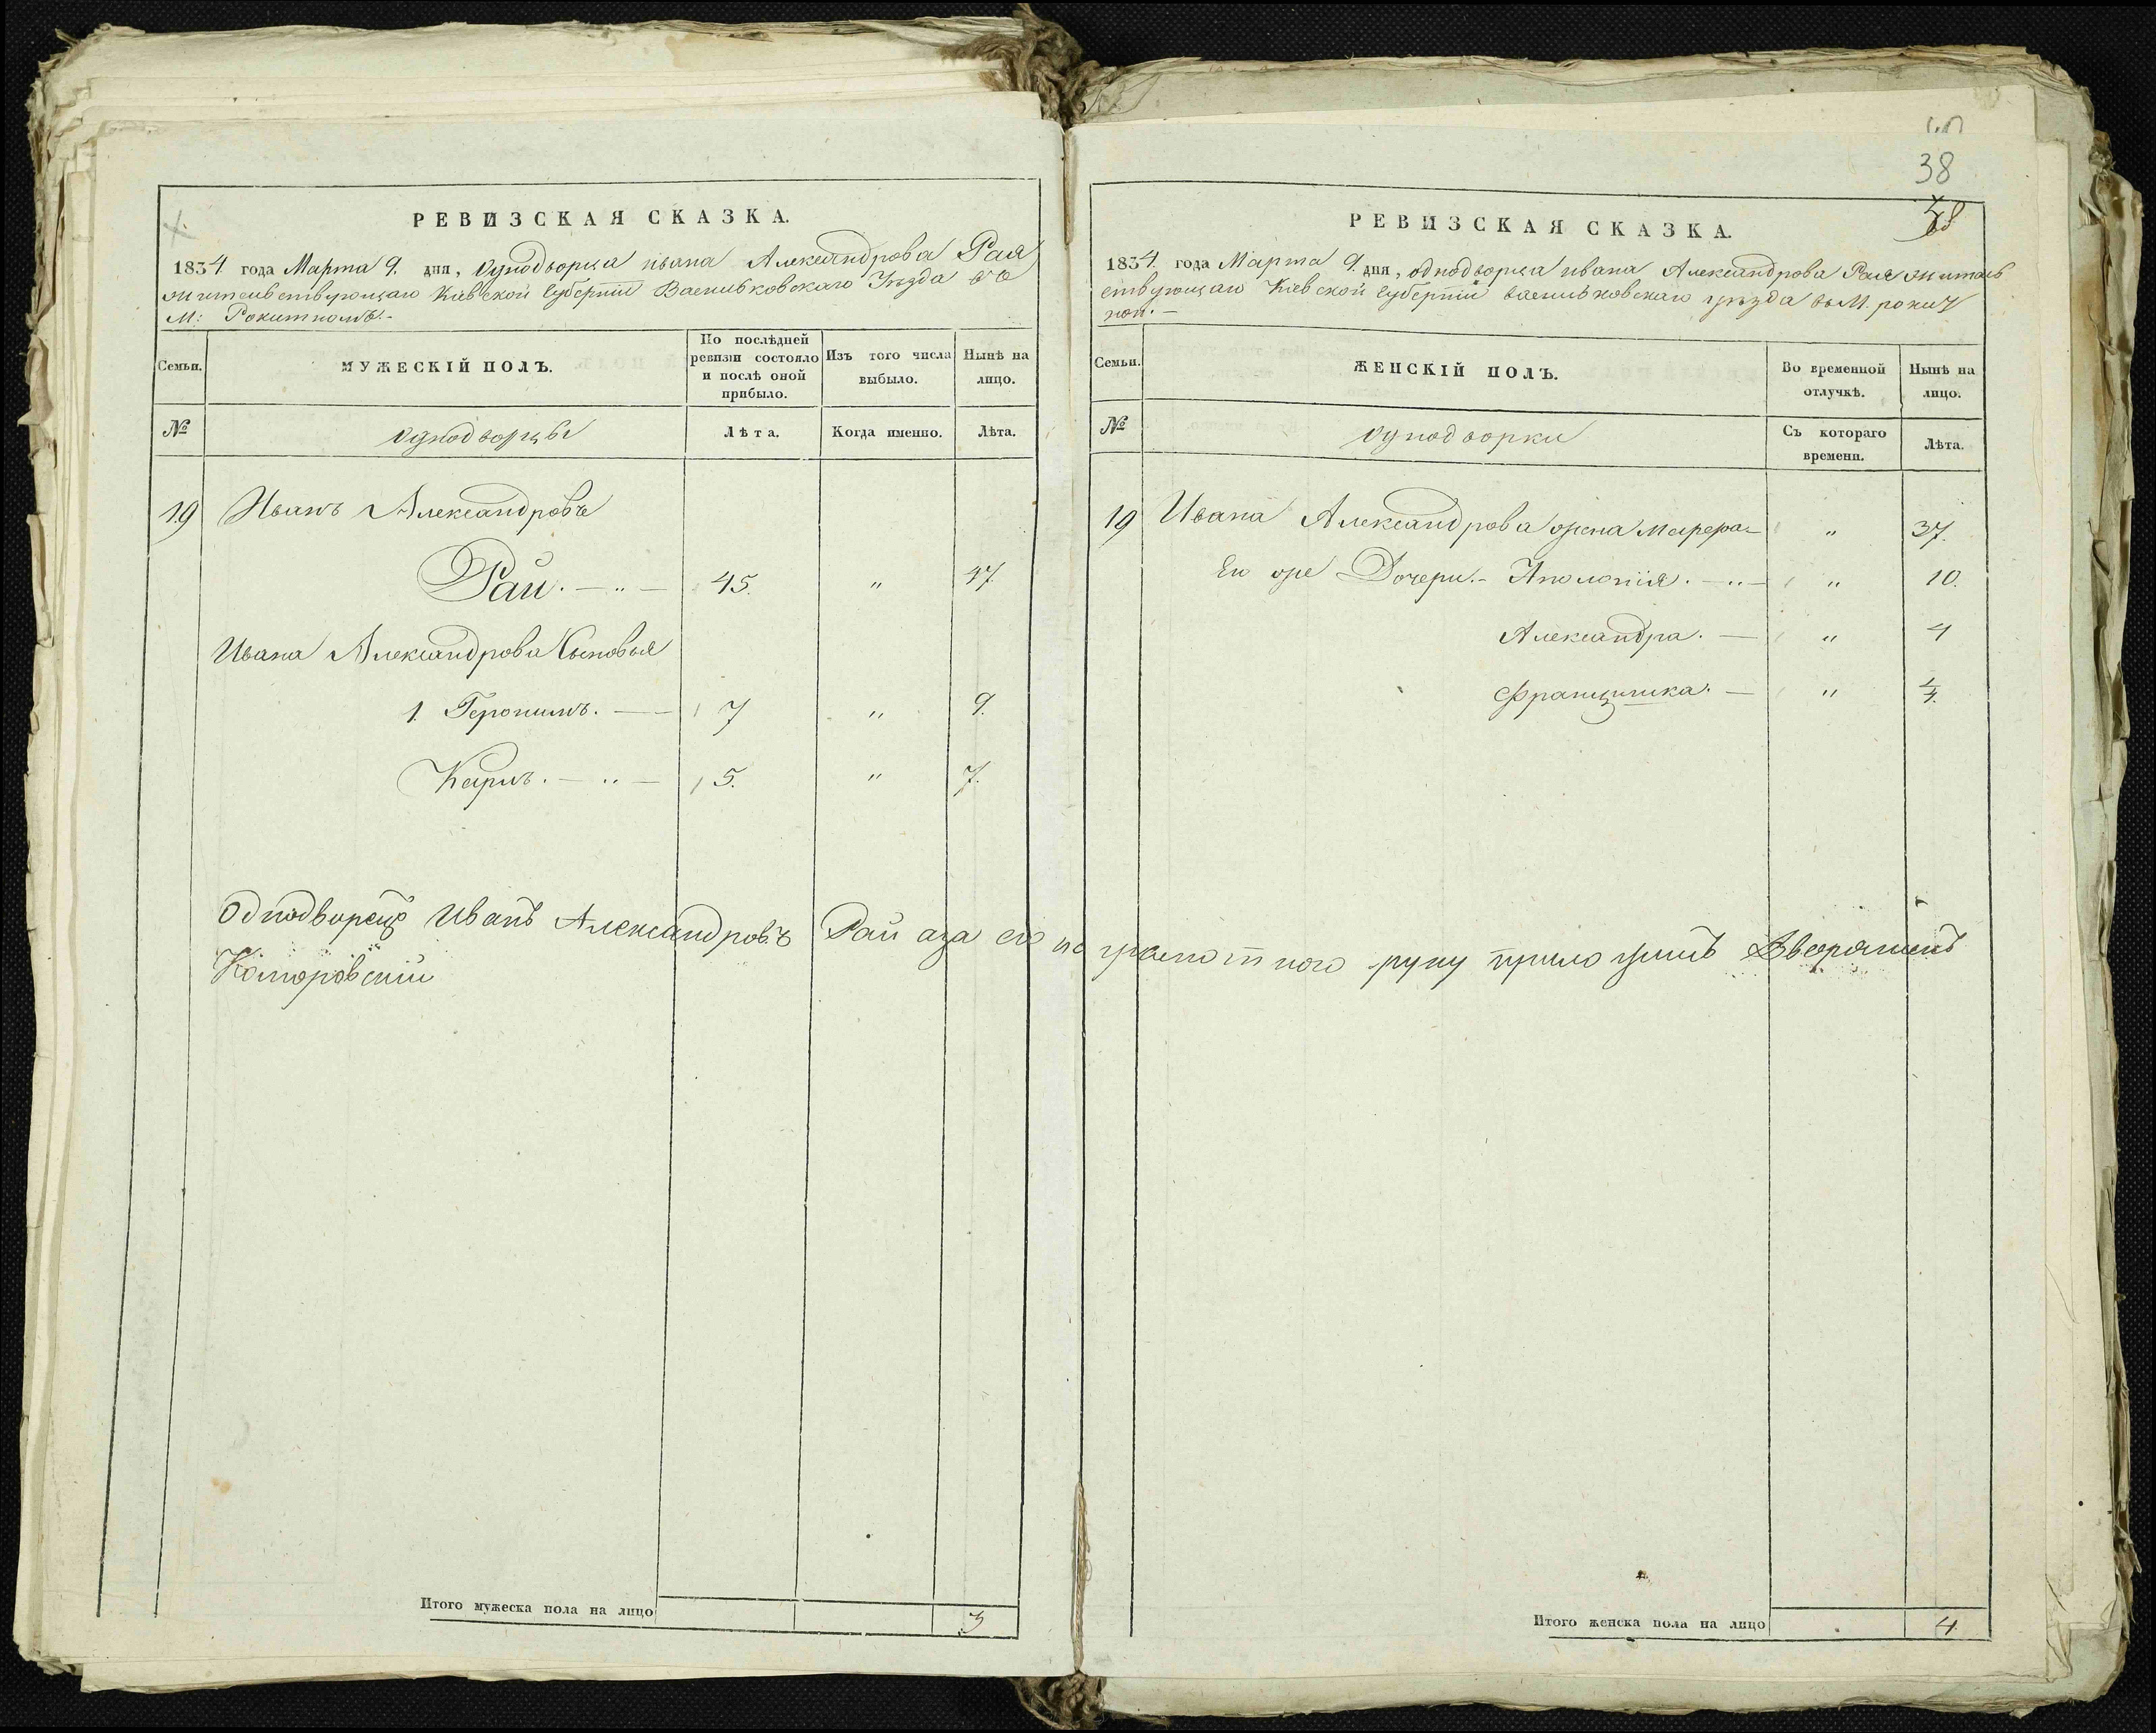 РЕВИЗСКАЯ СКАЗКА.
1834 года Марта 9. дня, Однодворца ивана Александрова Рая
жительствующаго Киевской Губернiи Васильковскаго Уѣзда въ
М: Рокитномъ.-
Семьи.
МУЖЕСКІЙ ПОЛЪ.
По послѣдней ревизіи состояло и послѣ оной прибыло.
Изъ того числа выбыло.
Нынѣ на лицо.
№
Однодворцы
Лѣта.
Когда именно.
Лѣта.
19 Иванъ Александровъ
Рай. — „ — 45. „ 47.
Ивана Александрова Сыновья
1. Геронимъ. — 7 „ 9.
Карлъ. — „ — 5. „ 7.
Однодворецъ Иванъ Александровъ Рай аза его не грамотного руку приложилъ Дворянинъ
Коморовский
Итого мужеска пола на лицо 3
38
РЕВИЗСКАЯ СКАЗКА.
1834 года Марта 9. дня, однодворца ивана Александрова Рая житель
ствующаго Киевской Губернiи васильковскаго уѣзда въ М. рокит
ном. —
Семьи.
ЖЕНСКІЙ ПОЛЪ.
Во временной отлучкѣ.
Нынѣ на лицо.
№
Однодворки
Съ котораго времени.
Лѣта.
19 Ивана Александрова жена Марфа- „ 37.
Ею же Дочери.- Аполонiя. — „ — „ 10.
Александра. — „ 4
Францишка. — „ 1/4.
Итого женска пола на лицо 4